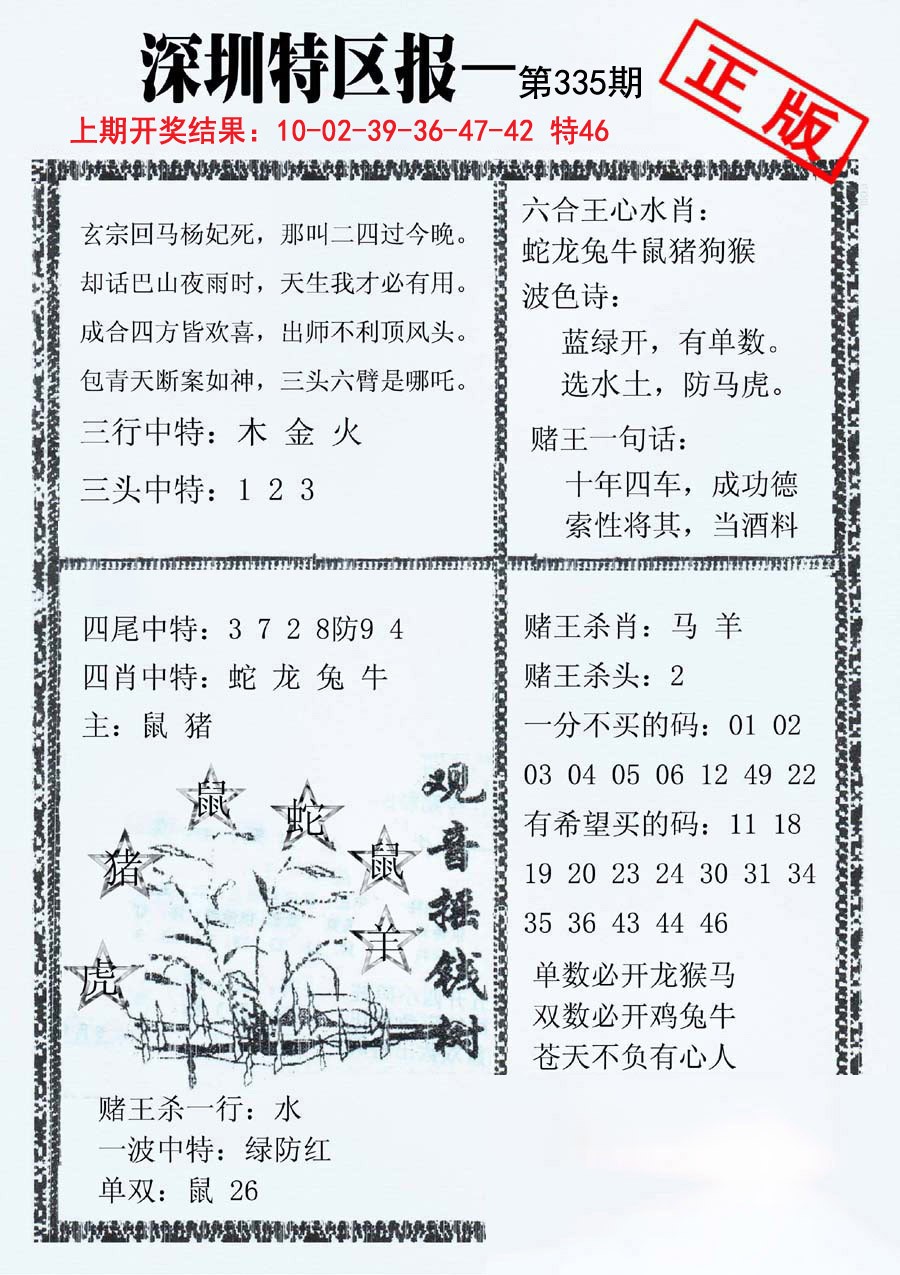 深圳特区报—第335期
正版
上期开奖结果：10-02-39-36-47-42 特46
玄宗回马杨妃死，那叫二四过今晚。
却话巴山夜雨时，天生我才必有用。
成合四方皆欢喜，出师不利顶风头。
包青天断案如神，三头六臂是哪吒。
三行中特：木 金 火
三头中特：1 2 3
六合王心水肖：
蛇龙兔牛鼠猪狗猴
波色诗：
蓝绿开，有单数。
选水土，防马虎。
赌王一句话：
十年四车，成功德
索性将其，当酒料
四尾中特：3 7 2 8防9 4
四肖中特：蛇 龙 兔 牛
主：鼠 猪
鼠
蛇
猪
鼠
羊
虎
观音摇钱树
赌王杀一行：水
一波中特：绿防红
单双：鼠 26
赌王杀肖：马 羊
赌王杀头：2
一分不买的码：01 02
03 04 05 06 12 49 22
有希望买的码：11 18
19 20 23 24 30 31 34
35 36 43 44 46
单数必开龙猴马
双数必开鸡兔牛
苍天不负有心人